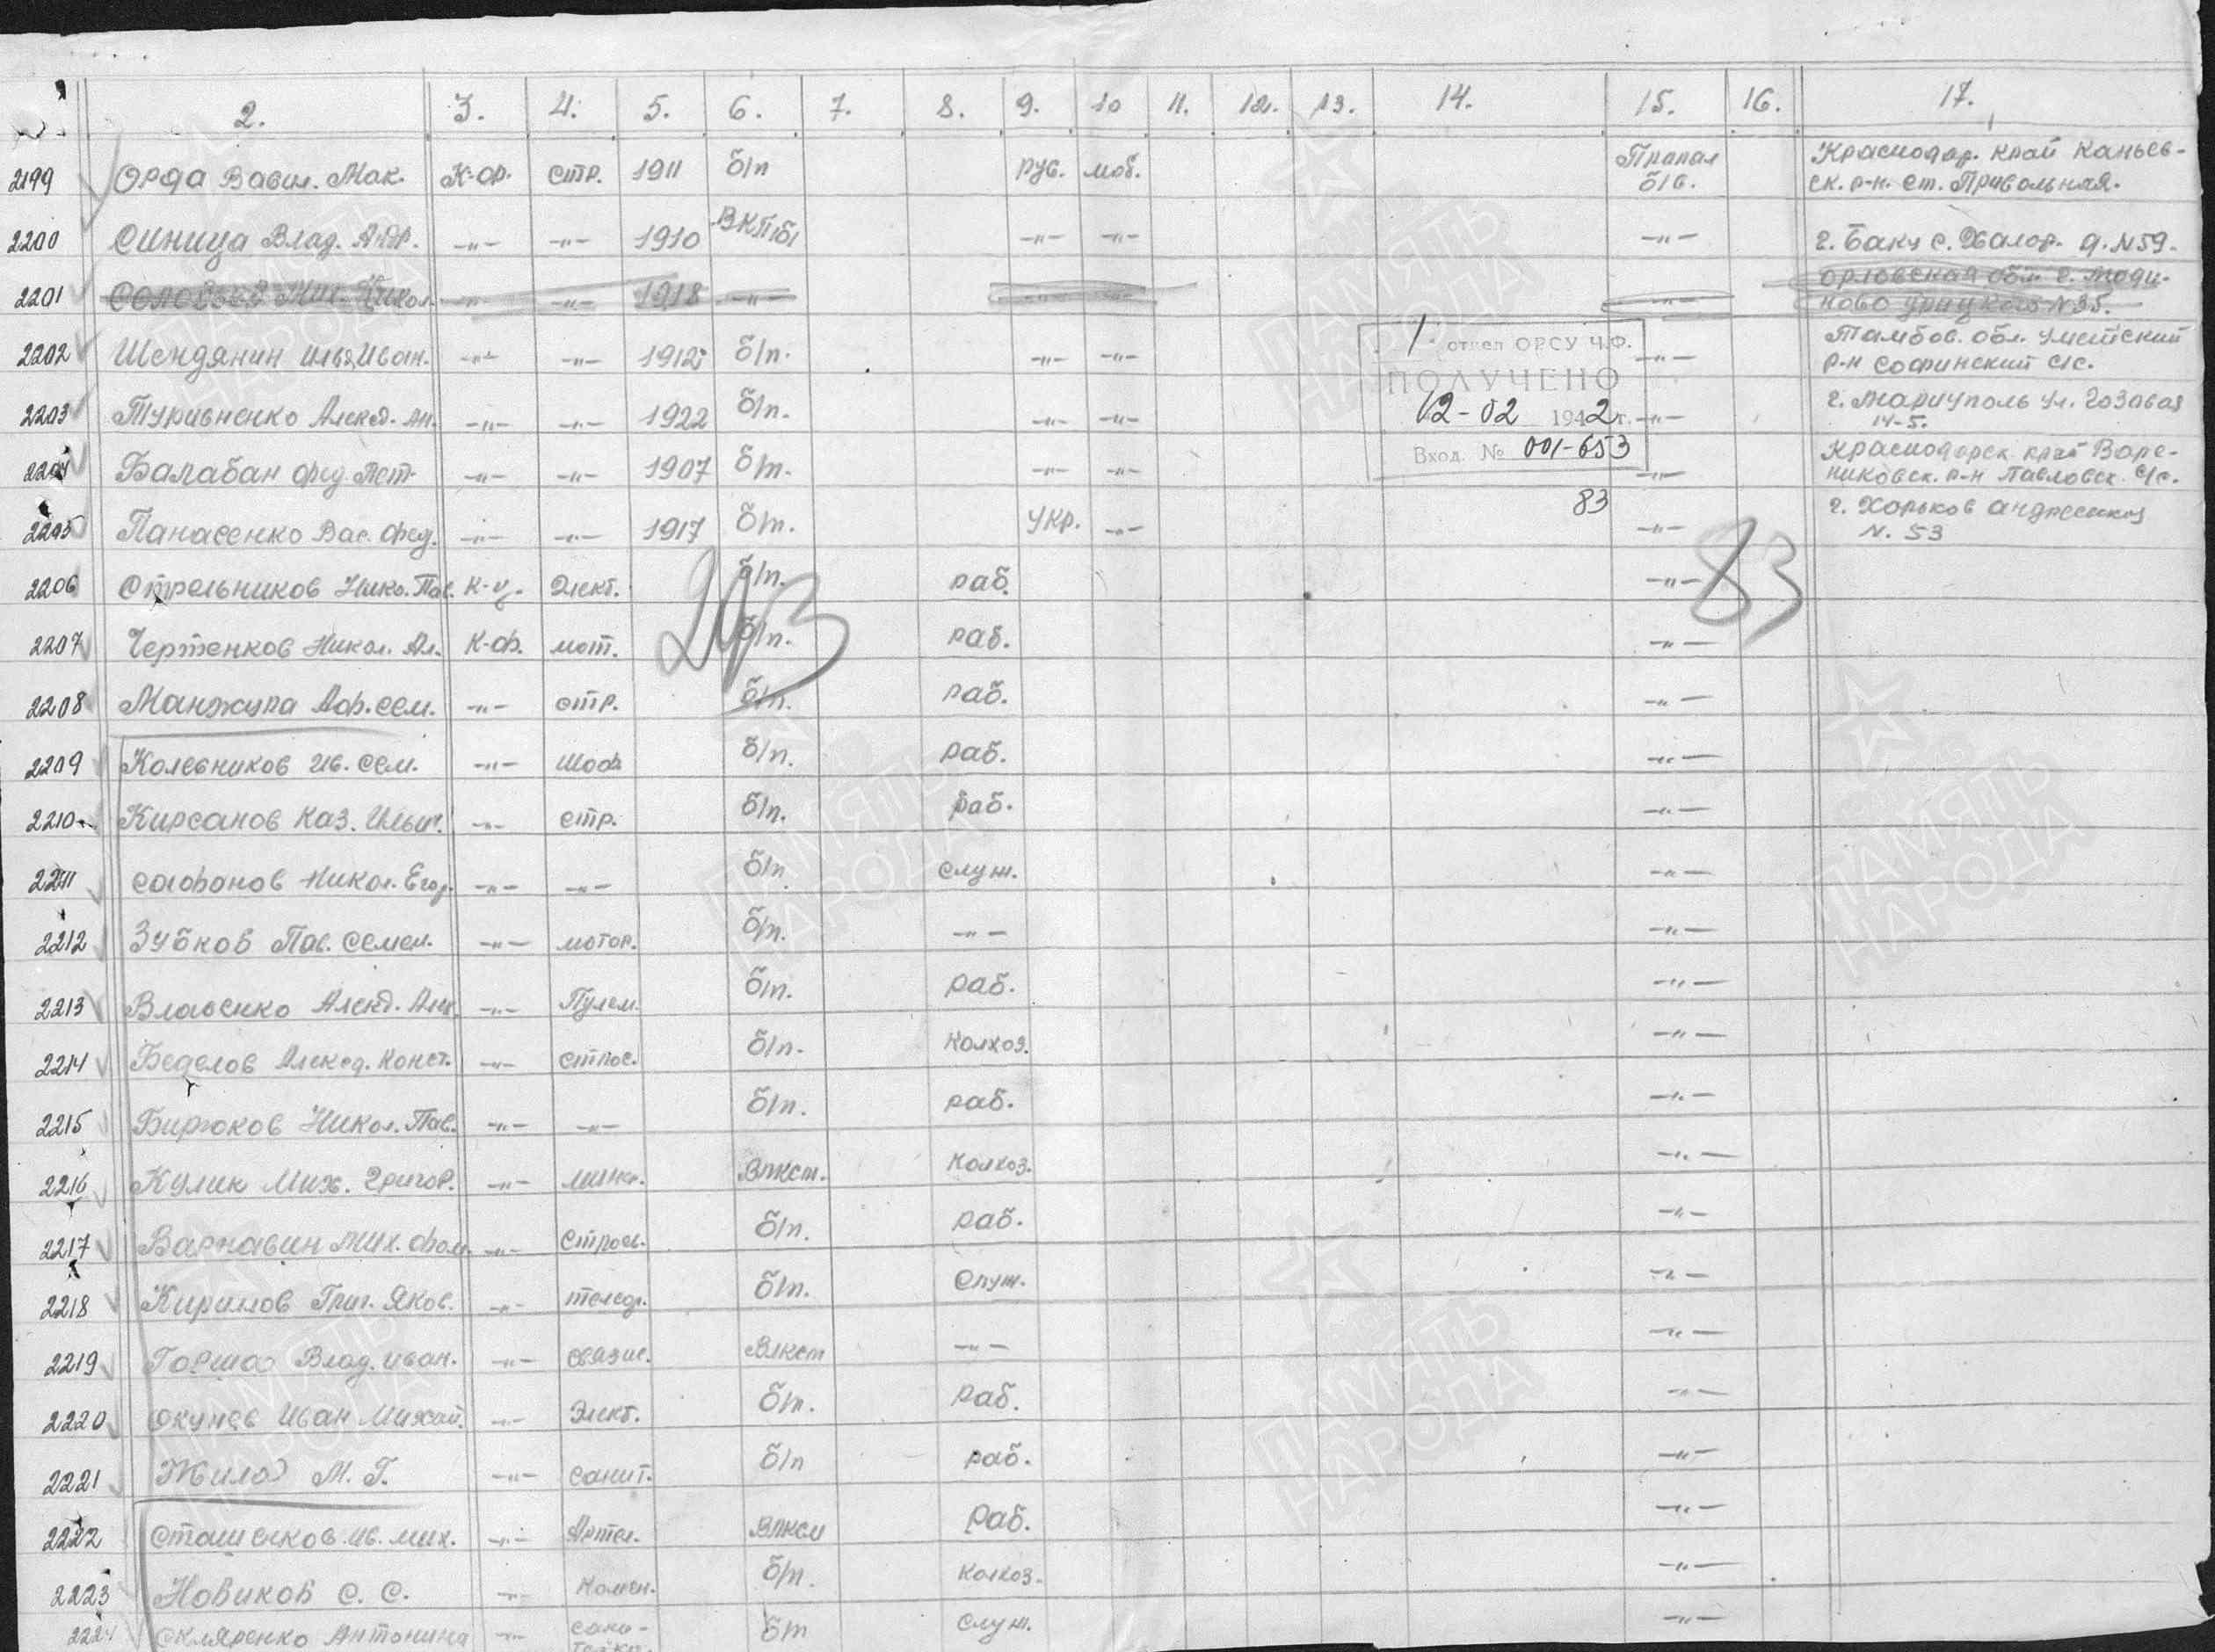 2. 3. 4. 5. 6. 7. 8. 9. 10 11. 12. 13. 14. 15. 16. 17.
2199 Орда Васил. Мак. К-ф. стр. 1911 б/п рус. моб. Пропал б/в. Краснодар. край Каневск. р-н. ст. Привольная.
2200 Синица Влад. Андр. -"- -"- 1910 ВКП(б) -"- -"- -"- г. Баку с. д. №59.
2201 Соловьев Мих. Никол. -"- -"- 1918 -"- -"- -"- -"- Орловская обл. г. Урицкого №35.
2202 Шендянин Илья Иван. -"- -"- 1912 б/п. -"- -"- -"- Тамбов. обл. Уметский р-н Софинский с/с.
2203 Туривненко Алексд. Ан. -"- -"- 1922 б/п. -"- -"- -"- г. Мариуполь ул. 14-5.
2204 Балабан Фед. Пет. -"- -"- 1907 б/п. -"- -"- -"- Краснодарск. край Варениковск. р-н Павловск. с/с.
1. отдел ОРСУ Ч.Ф.
ПОЛУЧЕНО
12-02 1942 г.
Вход. № 001-653
83
2205 Панасенко Вас. Фед. -"- -"- 1917 б/п. укр. -"- -"- г. Харьков N. 53
203
83
2206 Стрельников Нико. Пав. Элект. б/п. раб. -"-
2207 Чертенков Никол. Ал. К-ф. мот. б/п. раб. -"-
2208 Манжула Аф. Сем. -"- стр. б/п. раб. -"-
2209 Колесников Ив. Сем. -"- шоф б/п. раб. -"-
2210 Кирсанов Каз. Ильич. -"- стр. б/п. раб. -"-
2211 Сафонов Никол. Егор. -"- -"- б/п служ. -"-
2212 Зубков Пав. Семен. -"- мотор. б/п. -"- -"-
2213 Власенко Алекд. Ан. -"- Пулем. б/п. раб. -"-
2214 Беделов Алексд. Конст. -"- строе. б/п. колхоз. -"-
2215 Бирюков Никол. Пав. -"- -"- б/п. раб. -"-
2216 Кулик Мих. Григор. -"- Влксм. Колхоз. -"-
2217 Варнавин Мих. Фом. -"- строев. б/п. раб. -"-
2218 Кирилов Григ. Яков. -"- телеф. б/п. Служ. -"-
2219 Горша Влад. Иван. -"- связис. Влксм -"- -"-
2220 Окунев Иван Михай. -"- Элект. б/п. раб. -"-
2221 Жила М. Г. -"- санит. б/п раб. -"-
2222 Сташенков Ив. Мих. -"- Артил. Влксм Раб. -"-
2223 Новиков С. С. -"- Комен. б/п. колхоз. -"-
2224 Скляренко Антонина -"- сани- б/п служ. -"-
ПАМЯТЬ НАРОДА
ПАМЯТЬ НАРОДА
ПАМЯТЬ НАРОДА
ПАМЯТЬ НАРОДА
ПАМЯТЬ НАРОДА
ПАМЯТЬ НАРОДА